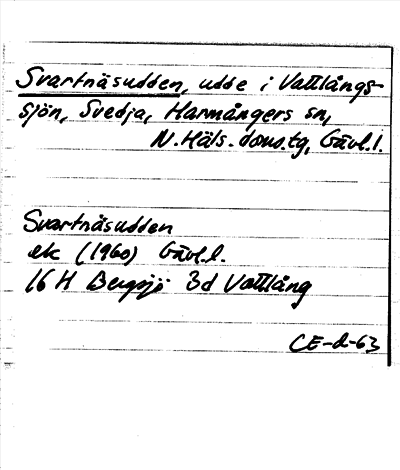 Svartnäsudden, udde i Vattlångs-
sjön, Svedja, Harmångers sn,
N. Häls. doms.tg, Gävl.l.
Svartnäsudden
ek (1960) Gävl.l.
16 H Bergsjö 3d Vattlång
CE-d-63